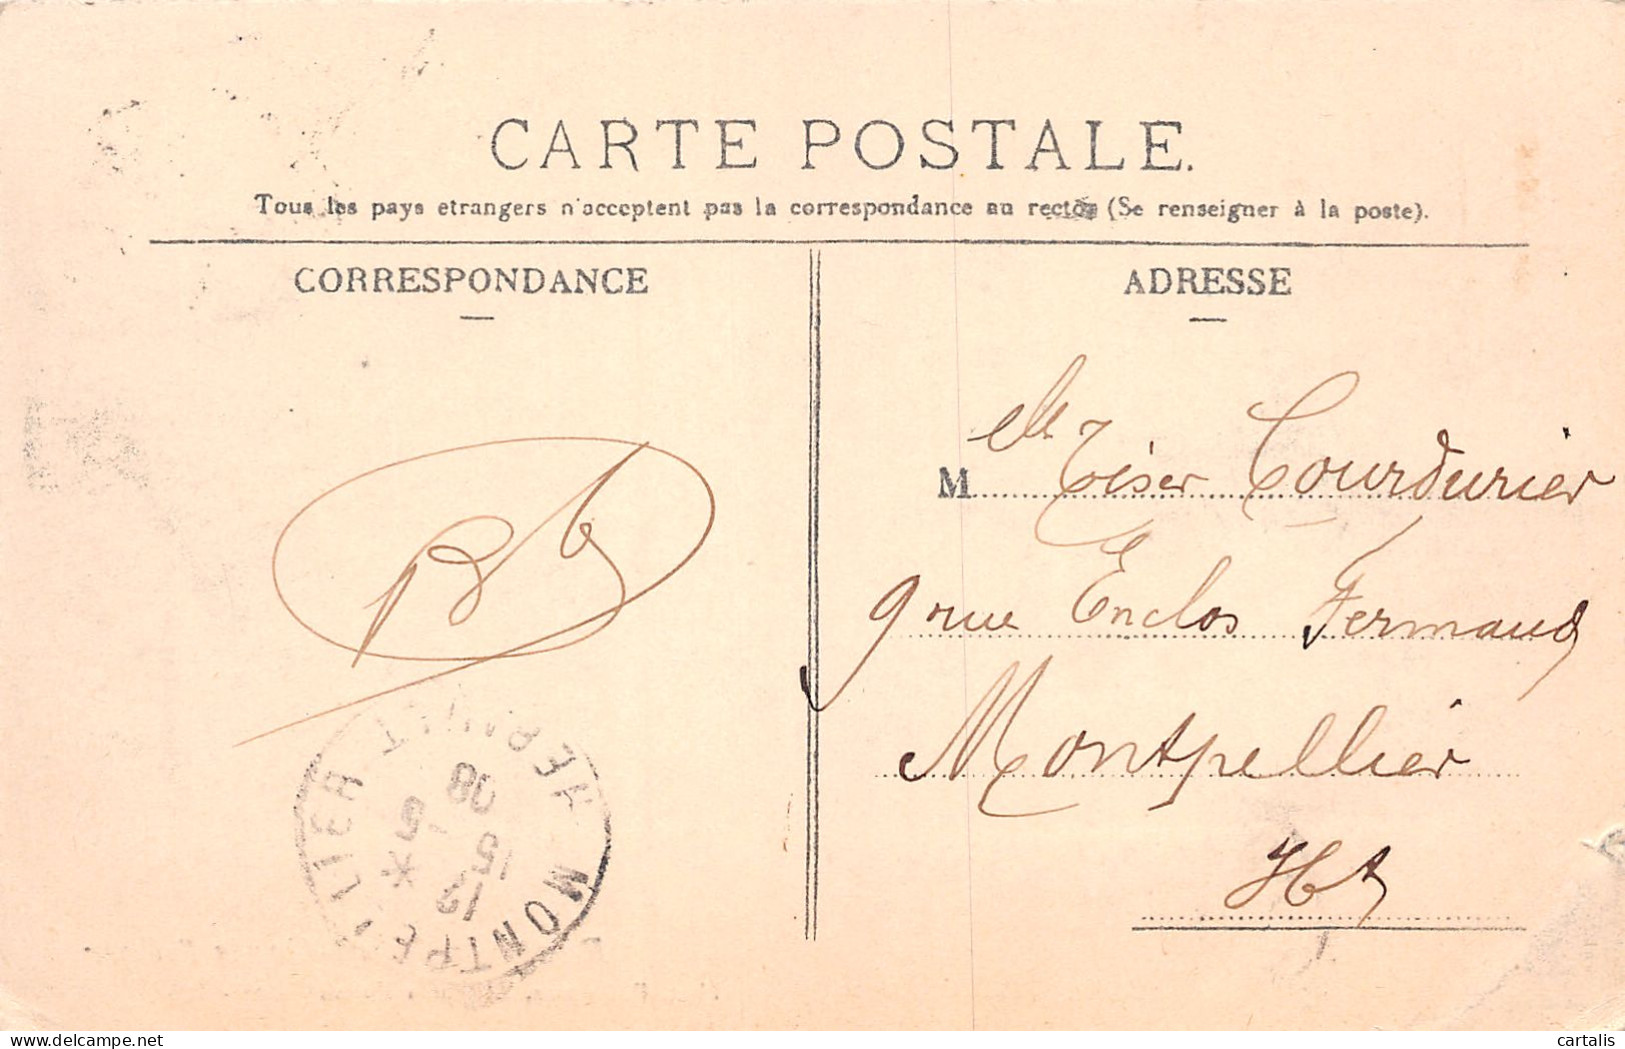 CARTE POSTALE.
Tous les pays etrangers n'acceptent pas la correspondance au recto (Se renseigner à la poste).
CORRESPONDANCE
ADRESSE
M elle Tiser Courdurier
9 rue Enclos Fermaud
Montpellier
Hlt
MONTPELLIER HERAULT
15
12
5
08
delcampe.net
cartalis